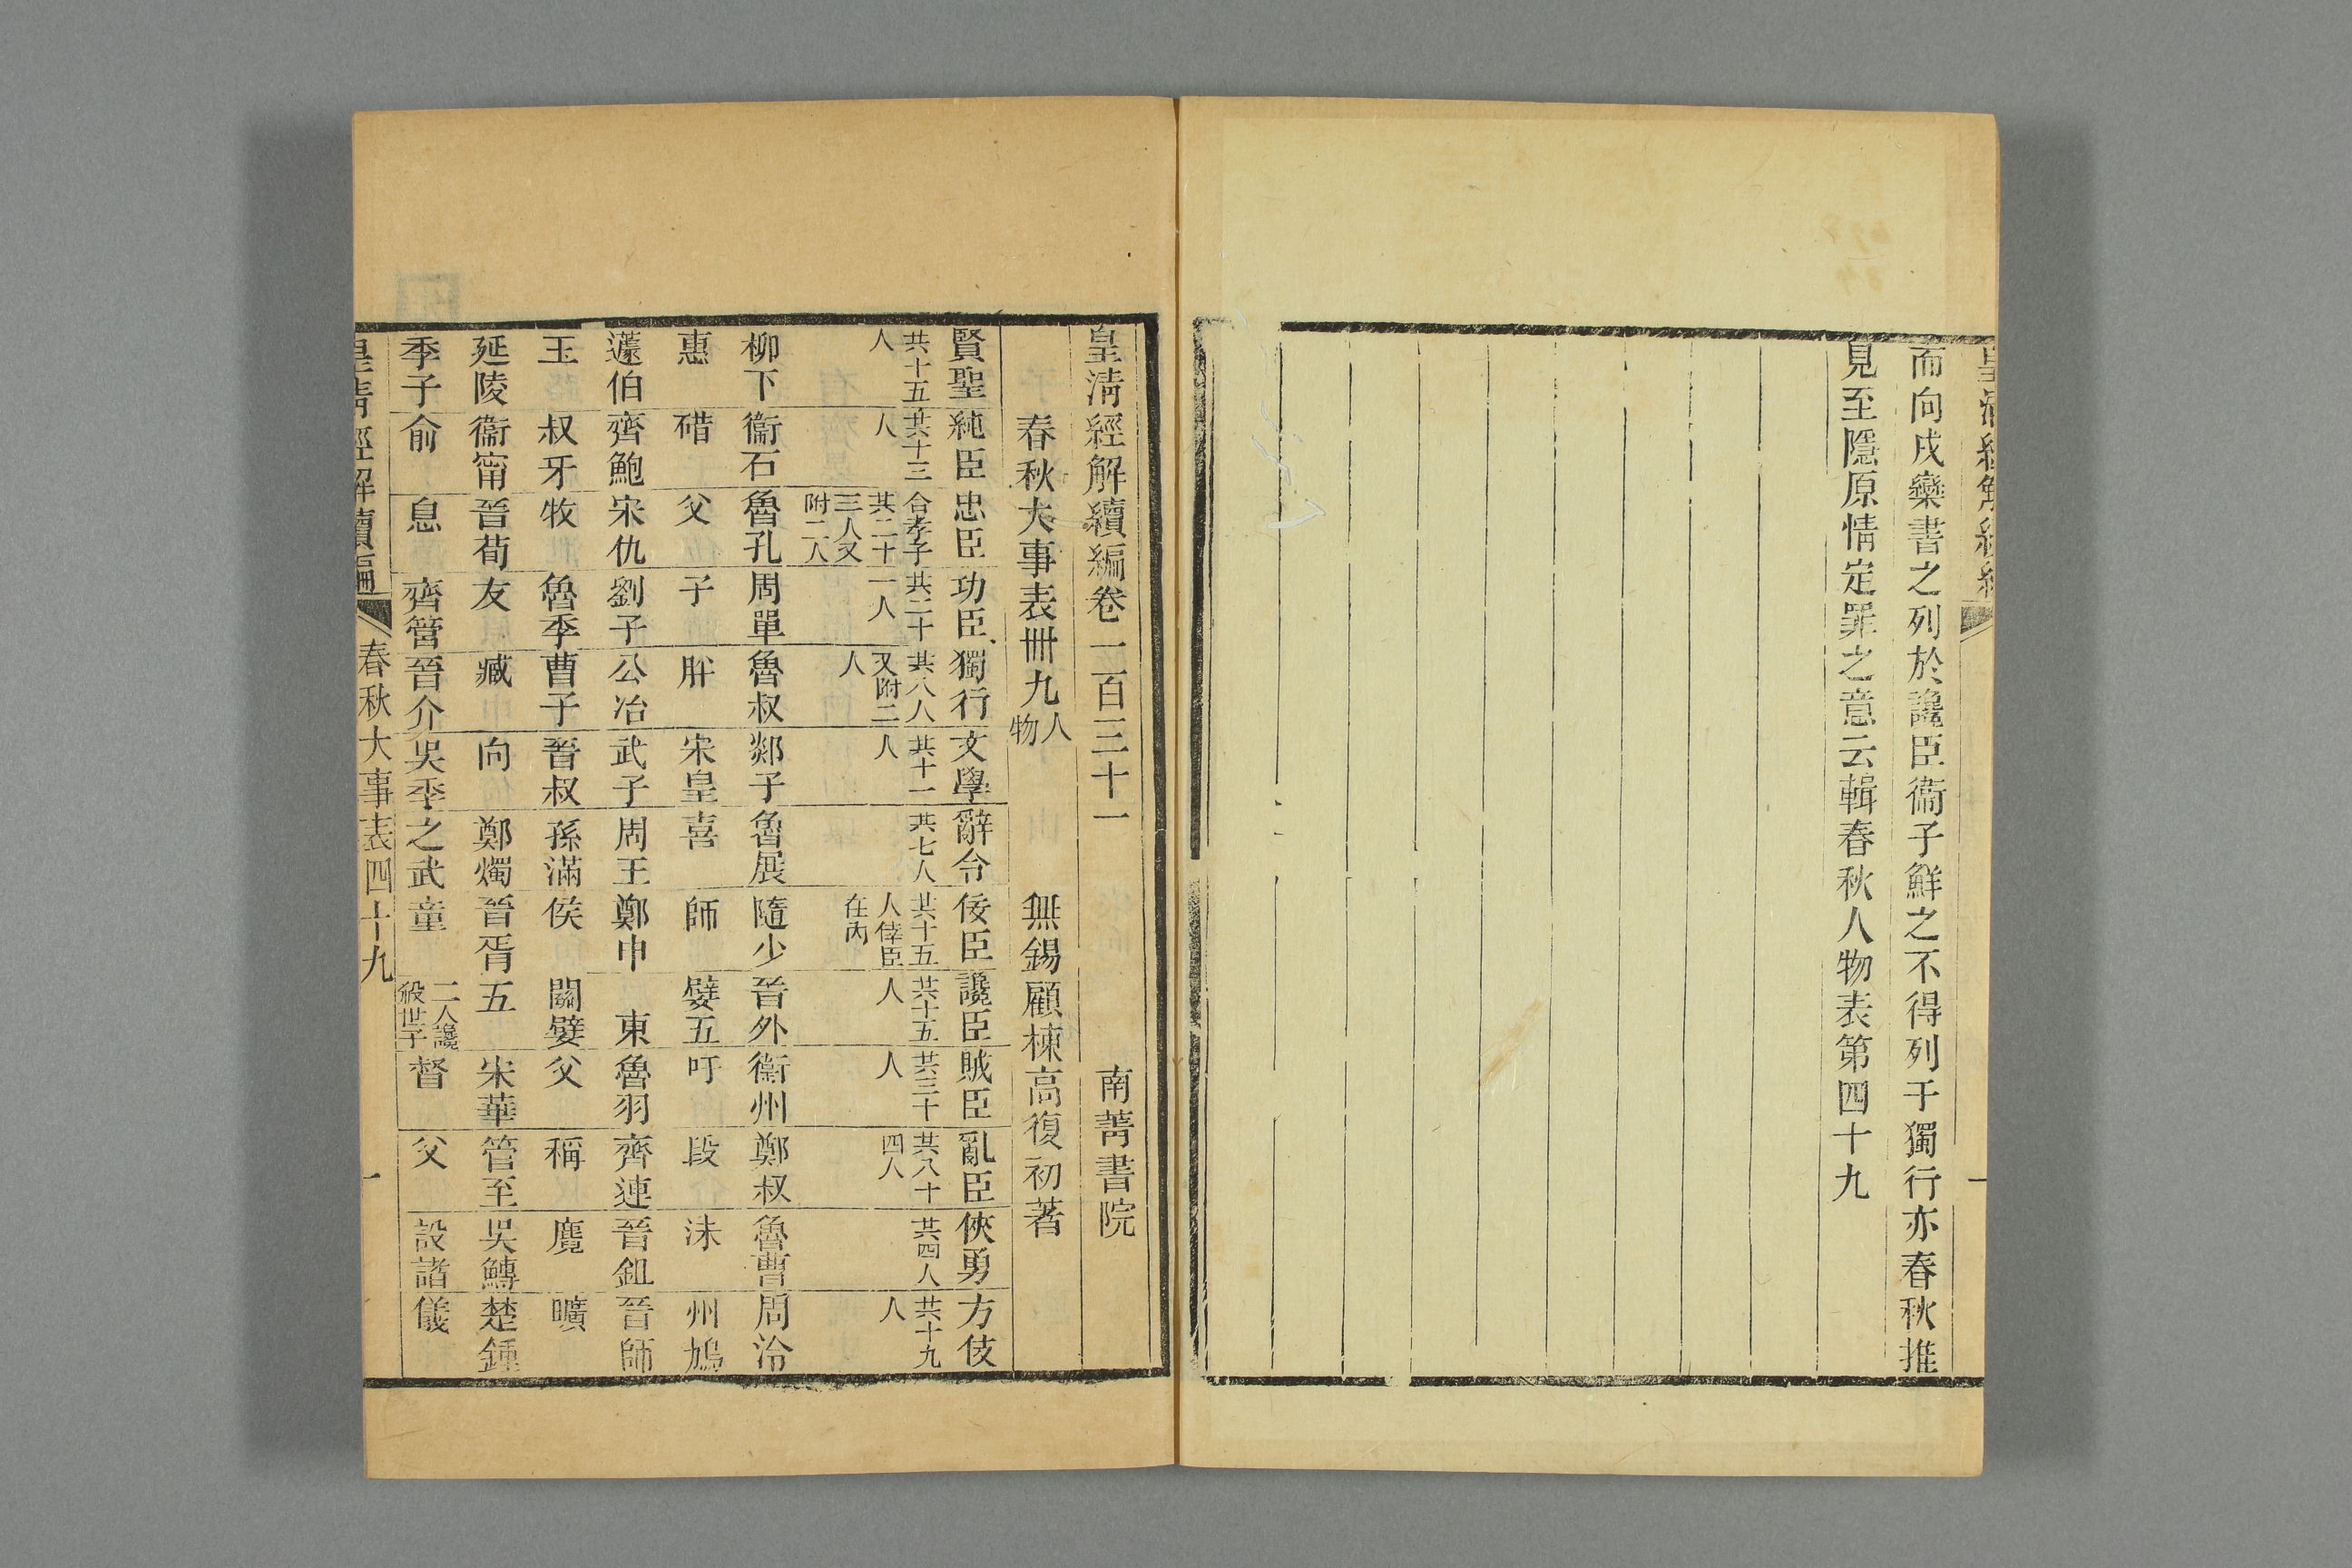 皇清經解續編 一
而向戌欒書之列於讒臣衞子鮮之不得列于獨行亦春秋推
見至隱原情定罪之意云輯春秋人物表第四十九
皇清經解續編卷一百三十一 南菁書院
春秋大事表卌九人物 無錫顧棟高復初著
賢聖 純臣 忠臣 功臣 獨行 文學 辭令 佞臣 讒臣 賊臣 亂臣 俠勇 方伎
共十五人 共十三人 合孝子共二十三人又附二人 共二十一人 共八人又附二人 共十一人 共七人 共十五人倖臣在內 共十五人 共三十人 共八十四人 共四人 共十九人
柳下 衞石 魯孔 周單 魯叔 郯子 魯展 隨少 晉外 衞州 鄭叔 魯曹 周泠
惠 碏 父 子 肸 宋皇 喜 師 嬖五 吁 段 沬 州鳩
蘧伯 齊鮑 宋仇 劉子 公冶 武子 周王 鄭申 東 魯羽 齊連 晉鉏 晉師
玉 叔牙 牧 魯季 曹子 晉叔 孫滿 侯 關嬖 父 稱 麑 曠
延陵 衞甯 晉荀 友 臧 向 鄭燭 晉胥 五 宋華 管至 吳鱄 楚鍾
季子 俞 息 齊管 晉介 吳季 之武 童 二人讒殺世子 督 父 設諸 儀
皇清經解續編 春秋大事表四十九 一